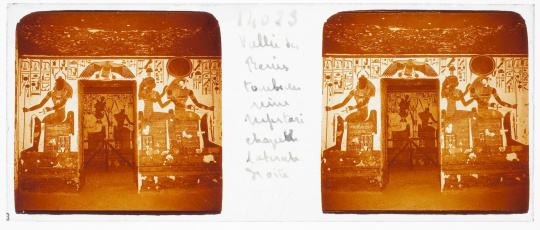 14023
Vallée des
Reines
tombeau
reine
Nefertari
chapelle
Latérale
droite